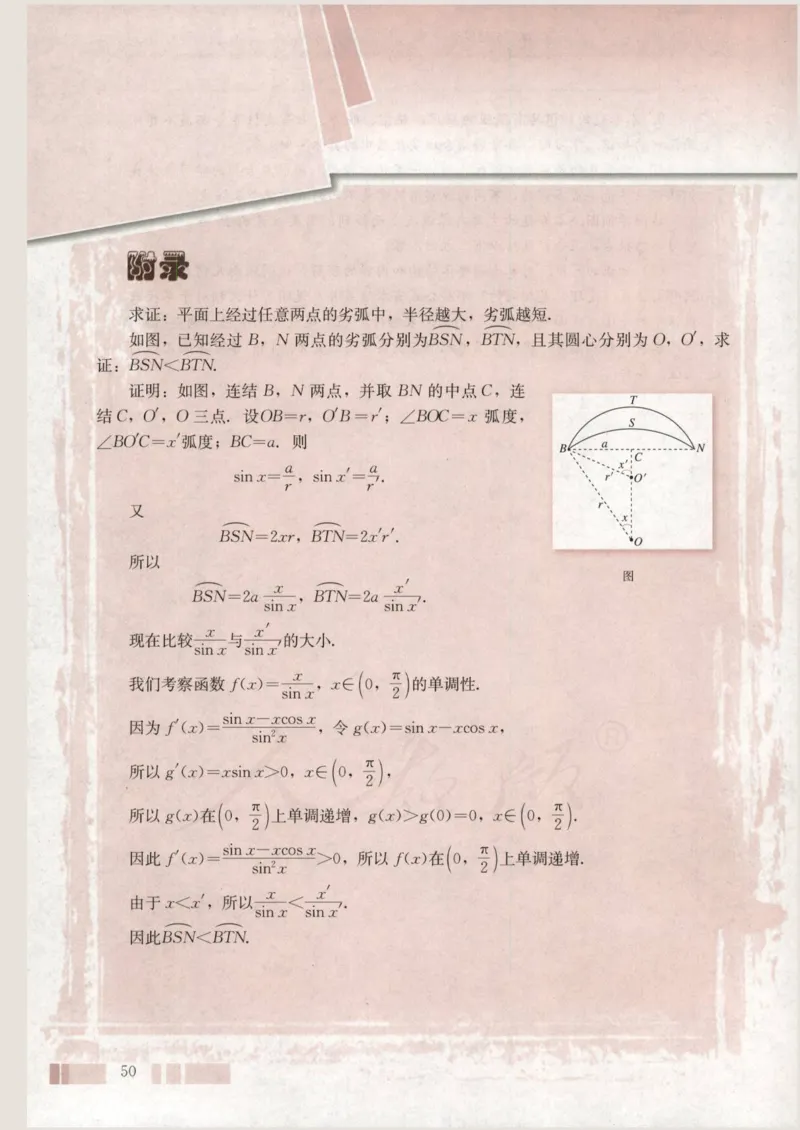 附录
求证：平面上经过任意两点的劣弧中，半径越大，劣弧越短.
如图，已知经过 B，N 两点的劣弧分别为⌒BSN，⌒BTN，且其圆心分别为 O，O′，求
证：⌒BSN<⌒BTN.
证明：如图，连结 B，N 两点，并取 BN 的中点 C，连
结 C，O′，O 三点．设OB=r，O′B=r′；∠BOC=x 弧度，
∠BO′C=x′弧度；BC=a．则
sin x=a/r，sin x′=a/r′.
又
⌒BSN=2xr，⌒BTN=2x′r′.
所以
⌒BSN=2a x/sin x，⌒BTN=2a x′/sin x′.
现在比较 x/sin x 与 x′/sin x′ 的大小.
我们考察函数 f(x)=x/sin x，x∈(0，π/2)的单调性.
因为 f′(x)=(sin x−xcos x)/sin²x，令 g(x)=sin x−xcos x，
所以 g′(x)=xsin x>0，x∈(0，π/2)，
所以 g(x)在(0，π/2)上单调递增，g(x)>g(0)=0，x∈(0，π/2).
因此 f′(x)=(sin x−xcos x)/sin²x>0，所以 f(x)在(0，π/2)上单调递增.
由于 x<x′，所以 x/sin x<x′/sin x′.
因此⌒BSN<⌒BTN.
T
S
B
a
N
C
x′
r′
O′
r
x
O
图
50